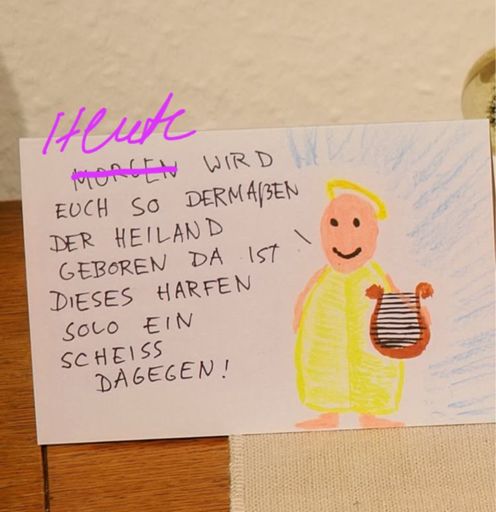 Heute
MORGEN WIRD
EUCH SO DERMAßEN
DER HEILAND
GEBOREN DA IST
DIESES HARFEN
SOLO EIN
SCHEISS
DAGEGEN!